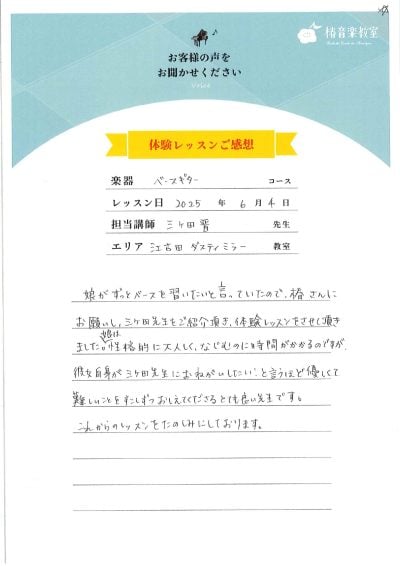 椿音楽教室
お客様の声を
お聞かせください
voice
体験レッスンご感想
楽器 ベースギター コース
レッスン日 2025 年 6 月 4 日
担当講師 三ケ田 晋 先生
エリア 江古田 ダスティミラー 教室
娘がずっとベースを習いたいと言っていたので、椿さんに
お願いし、三ケ田先生をご紹介頂き、体験レッスンをさせて頂き
ました。娘は性格的に大人しく、なじむのに時間がかかるのですが、
彼女自身が三ケ田先生におねがいしたい、と言うほど優しくて
難しいことをすこしずつおしえてくださるとても良い先生です。
これからのレッスンをたのしみにしております。